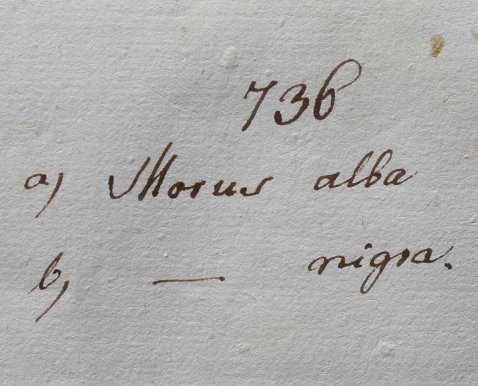 736
a) Morus alba
b) — nigra.